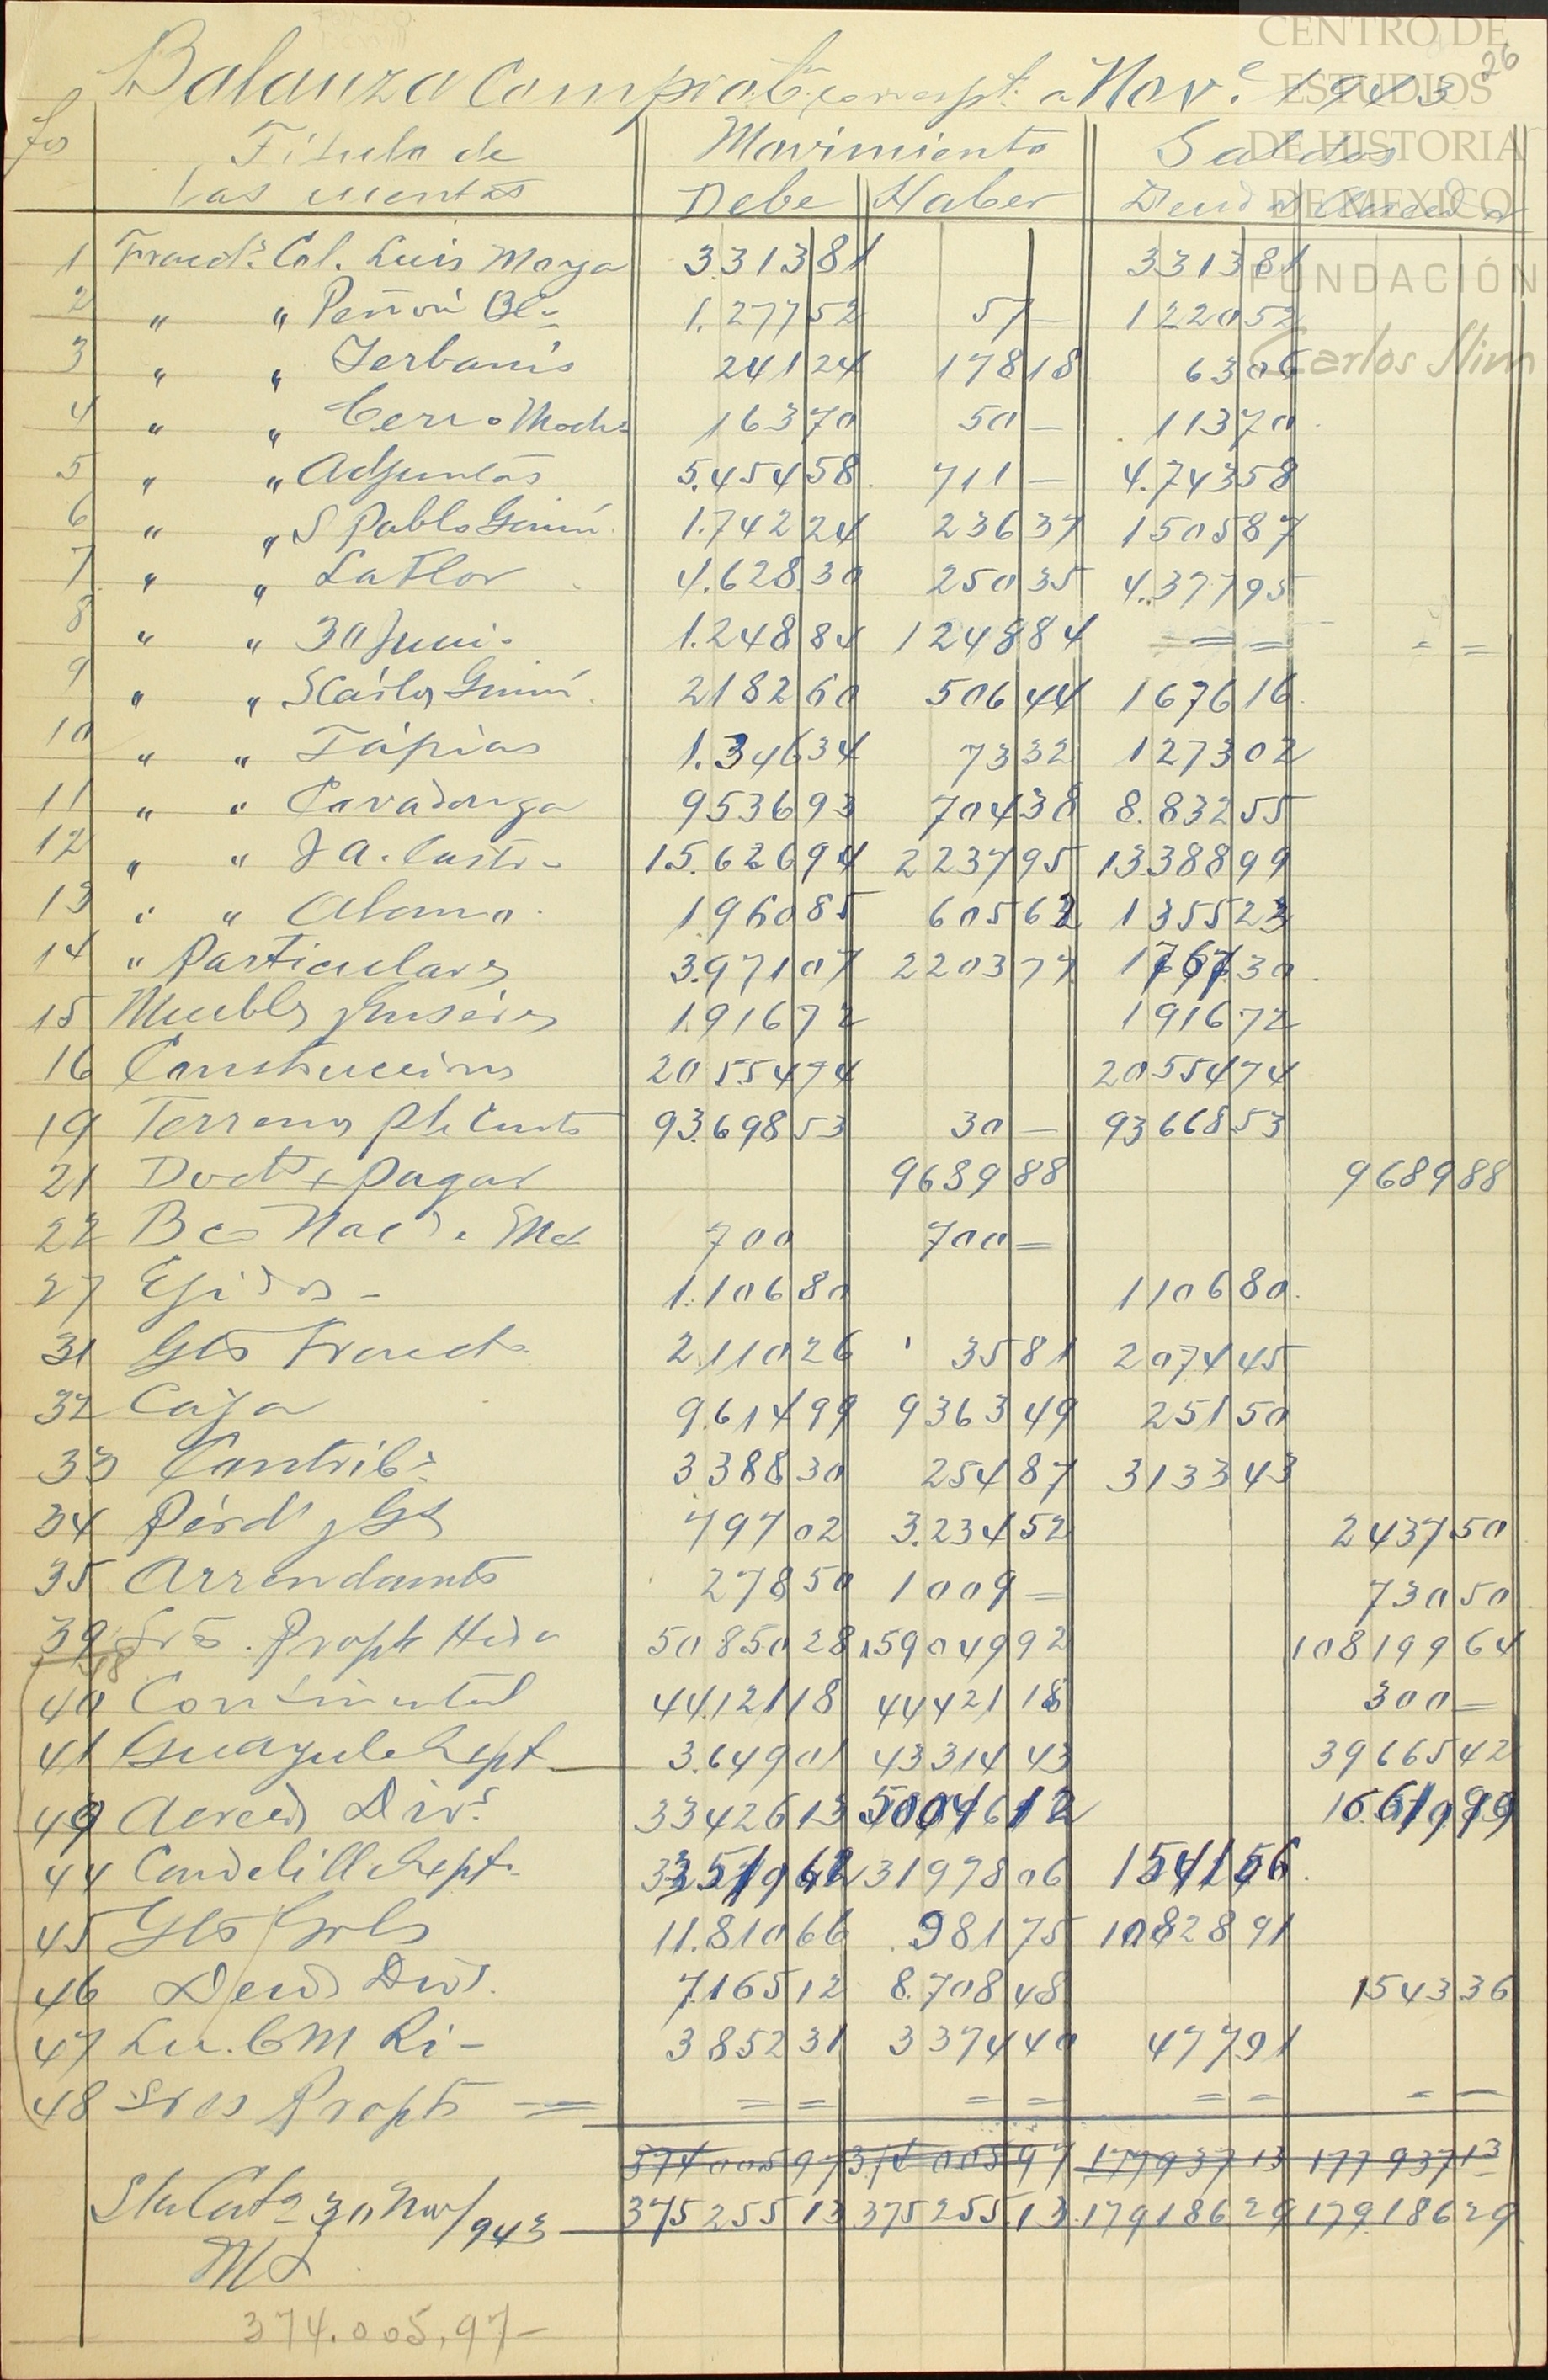 26
Balanza Comprobn. corresp.te a Nov.e 1943
CENTRO DE
ESTUDIOS
DE HISTORIA
DE MEXICO
FUNDACIÓN
Carlos Slim
fo Título de Movimiento Saldos
las cuentas Debe Haber Deudor Acreedor
1 Fracc. Col. Luis Moya 3.313 81 3313 81
2 " " Peñón Bl 1.277 52 57 — 1220 52
3 " " Yerbanis 241 24 178 18 63 06
4 " " Cerro Mocho 163 70 50 — 113 70
5 " " Adjuntas 5.454 58 711 — 4.743 58
6 " " S Pablo Gmn 1.742 24 236 37 1505 87
7 " " La Flor 4.628 30 250 35 4.377 95
8 " " 30 Junio 1.248 84 1248 84 = = = =
9 " " S Carlos Gmn 2182 60 506 44 1676 16
10 " " Tapias 1.346 34 73 32 1273 02
11 " " Covadonga 9536 93 704 38 8.832 55
12 " " J A. Castro 15.626 94 2237 95 13388 99
13 " " Alamo 1960 85 605 62 1355 23
14 " Particulares 3.971 07 2203 77 1767 30
15 Muebles y Enseres 1916 72 1916 72
16 Construcciones 20554 74 20554 74
19 Terrenos 93.698 53 30 — 93668 53
21 Doct x pagar 9689 88 9689 88
22 Bco Nac de Mex 700 700 =
27 Ejidos - 1.106 80 1106 80
31 Gts Fracc 2110 26 35 81 2074 45
32 Caja 9.614 99 9363 49 251 50
33 Contrib 3388 30 254 87 3133 43
34 Pérd y Gs 797 02 3.234 52 2437 50
35 Arrendamts 278 50 1009 — 730 50
39 Propts Hda 50850 28 159049 92 108199 64
18
40 Continental 44.121 18 44421 18 300 =
41 Guayule Expt 3.649 01 43314 43 39665 42
49 Acreeds Divs 33426 13 50046 12 16.619 99
44 Candelilla Expt 33519 62 31978 06 1541 56
45 Gts Grls 11.810 66 981 75 10828 91
46 Deuds Divs. 7165 12 8.708 48 1543 36
47 3852 31 3374 40 477 91
48 Sres Propts = = = = = = = = =
374005 97 374005 97 177937 13 177937 13
Sta Cata 30 Nov/943 375255 13 375255 13 179186 29 179186 29
374.005.97-